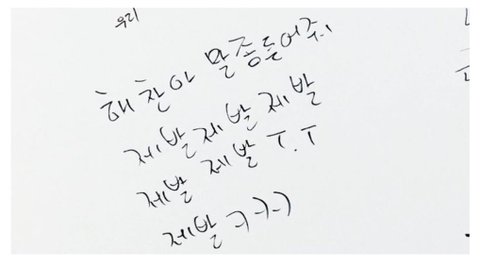 우리
해찬아 말좀들어줘
제발제발 제발
제발 제발 T.T
제발 ㅋㅋㅋ